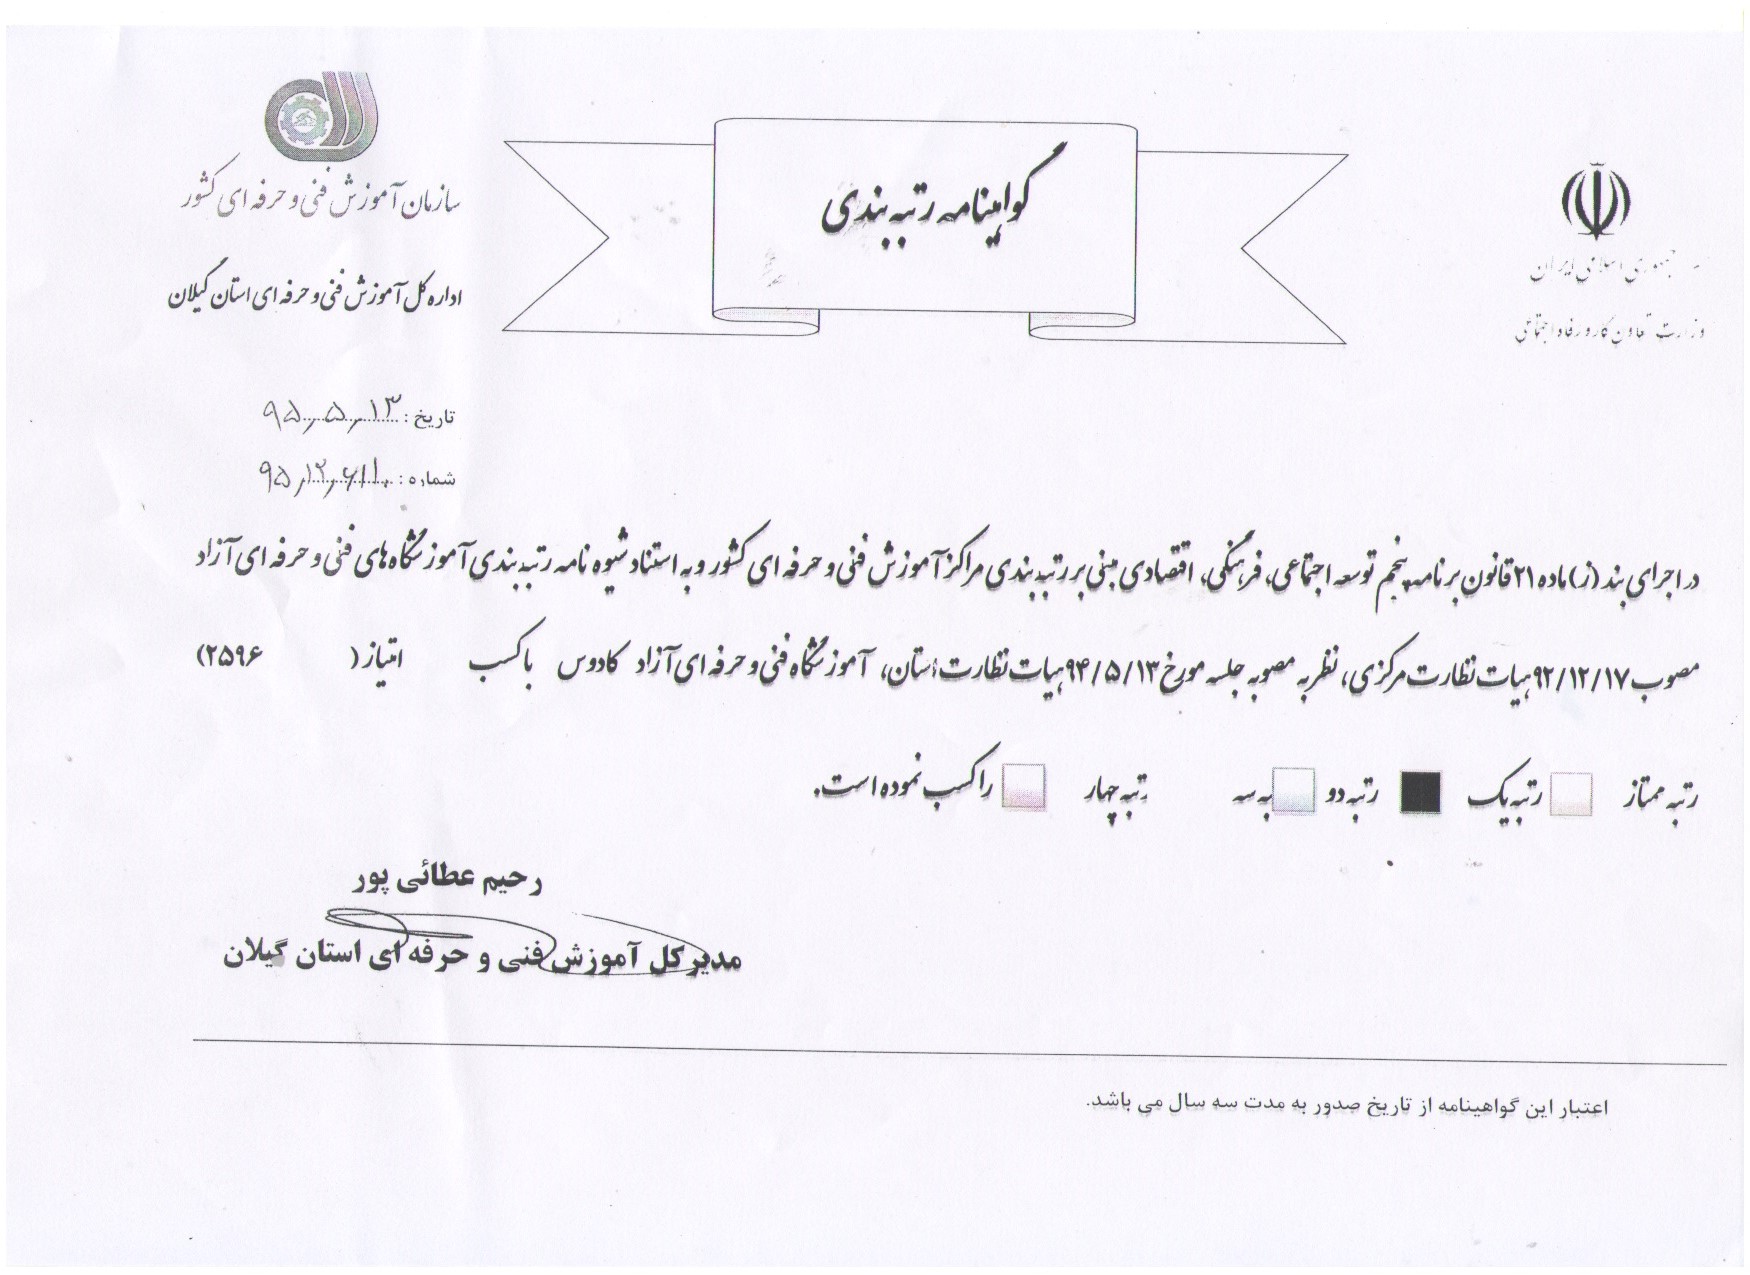 گواهینامه رتبه بندی
جمهوری اسلامی ایران
وزارت تعاون کار و رفاه اجتماعی
سازمان آموزش فنی و حرفه ای کشور
اداره کل آموزش فنی و حرفه ای استان گیلان
تاریخ: ۹۵٫۵٫۱۳
شماره:
در اجرای بند (ز) ماده ۲۱ قانون برنامه پنجم توسعه اجتماعی، فرهنگی، اقتصادی مبنی بر رتبه بندی مراکز آموزش فنی و حرفه ای کشور و به استناد شیوه نامه رتبه بندی آموزشگاه های فنی و حرفه ای آزاد
مصوب ۹۲/۱۲/۱۷ هیات نظارت مرکزی، نظر به مصوبه جلسه مورخ ۹۴/۵/۱۳ هیات نظارت استان، آموزشگاه فنی و حرفه ای آزاد کادوس با کسب امتیاز (۲۵۹۶)
رتبه ممتاز رتبه یک رتبه دو به سه رتبه چهار را کسب نموده است.
رحیم عطائی پور
مدیر کل آموزش فنی و حرفه ای استان گیلان
اعتبار این گواهینامه از تاریخ صدور به مدت سه سال می باشد.